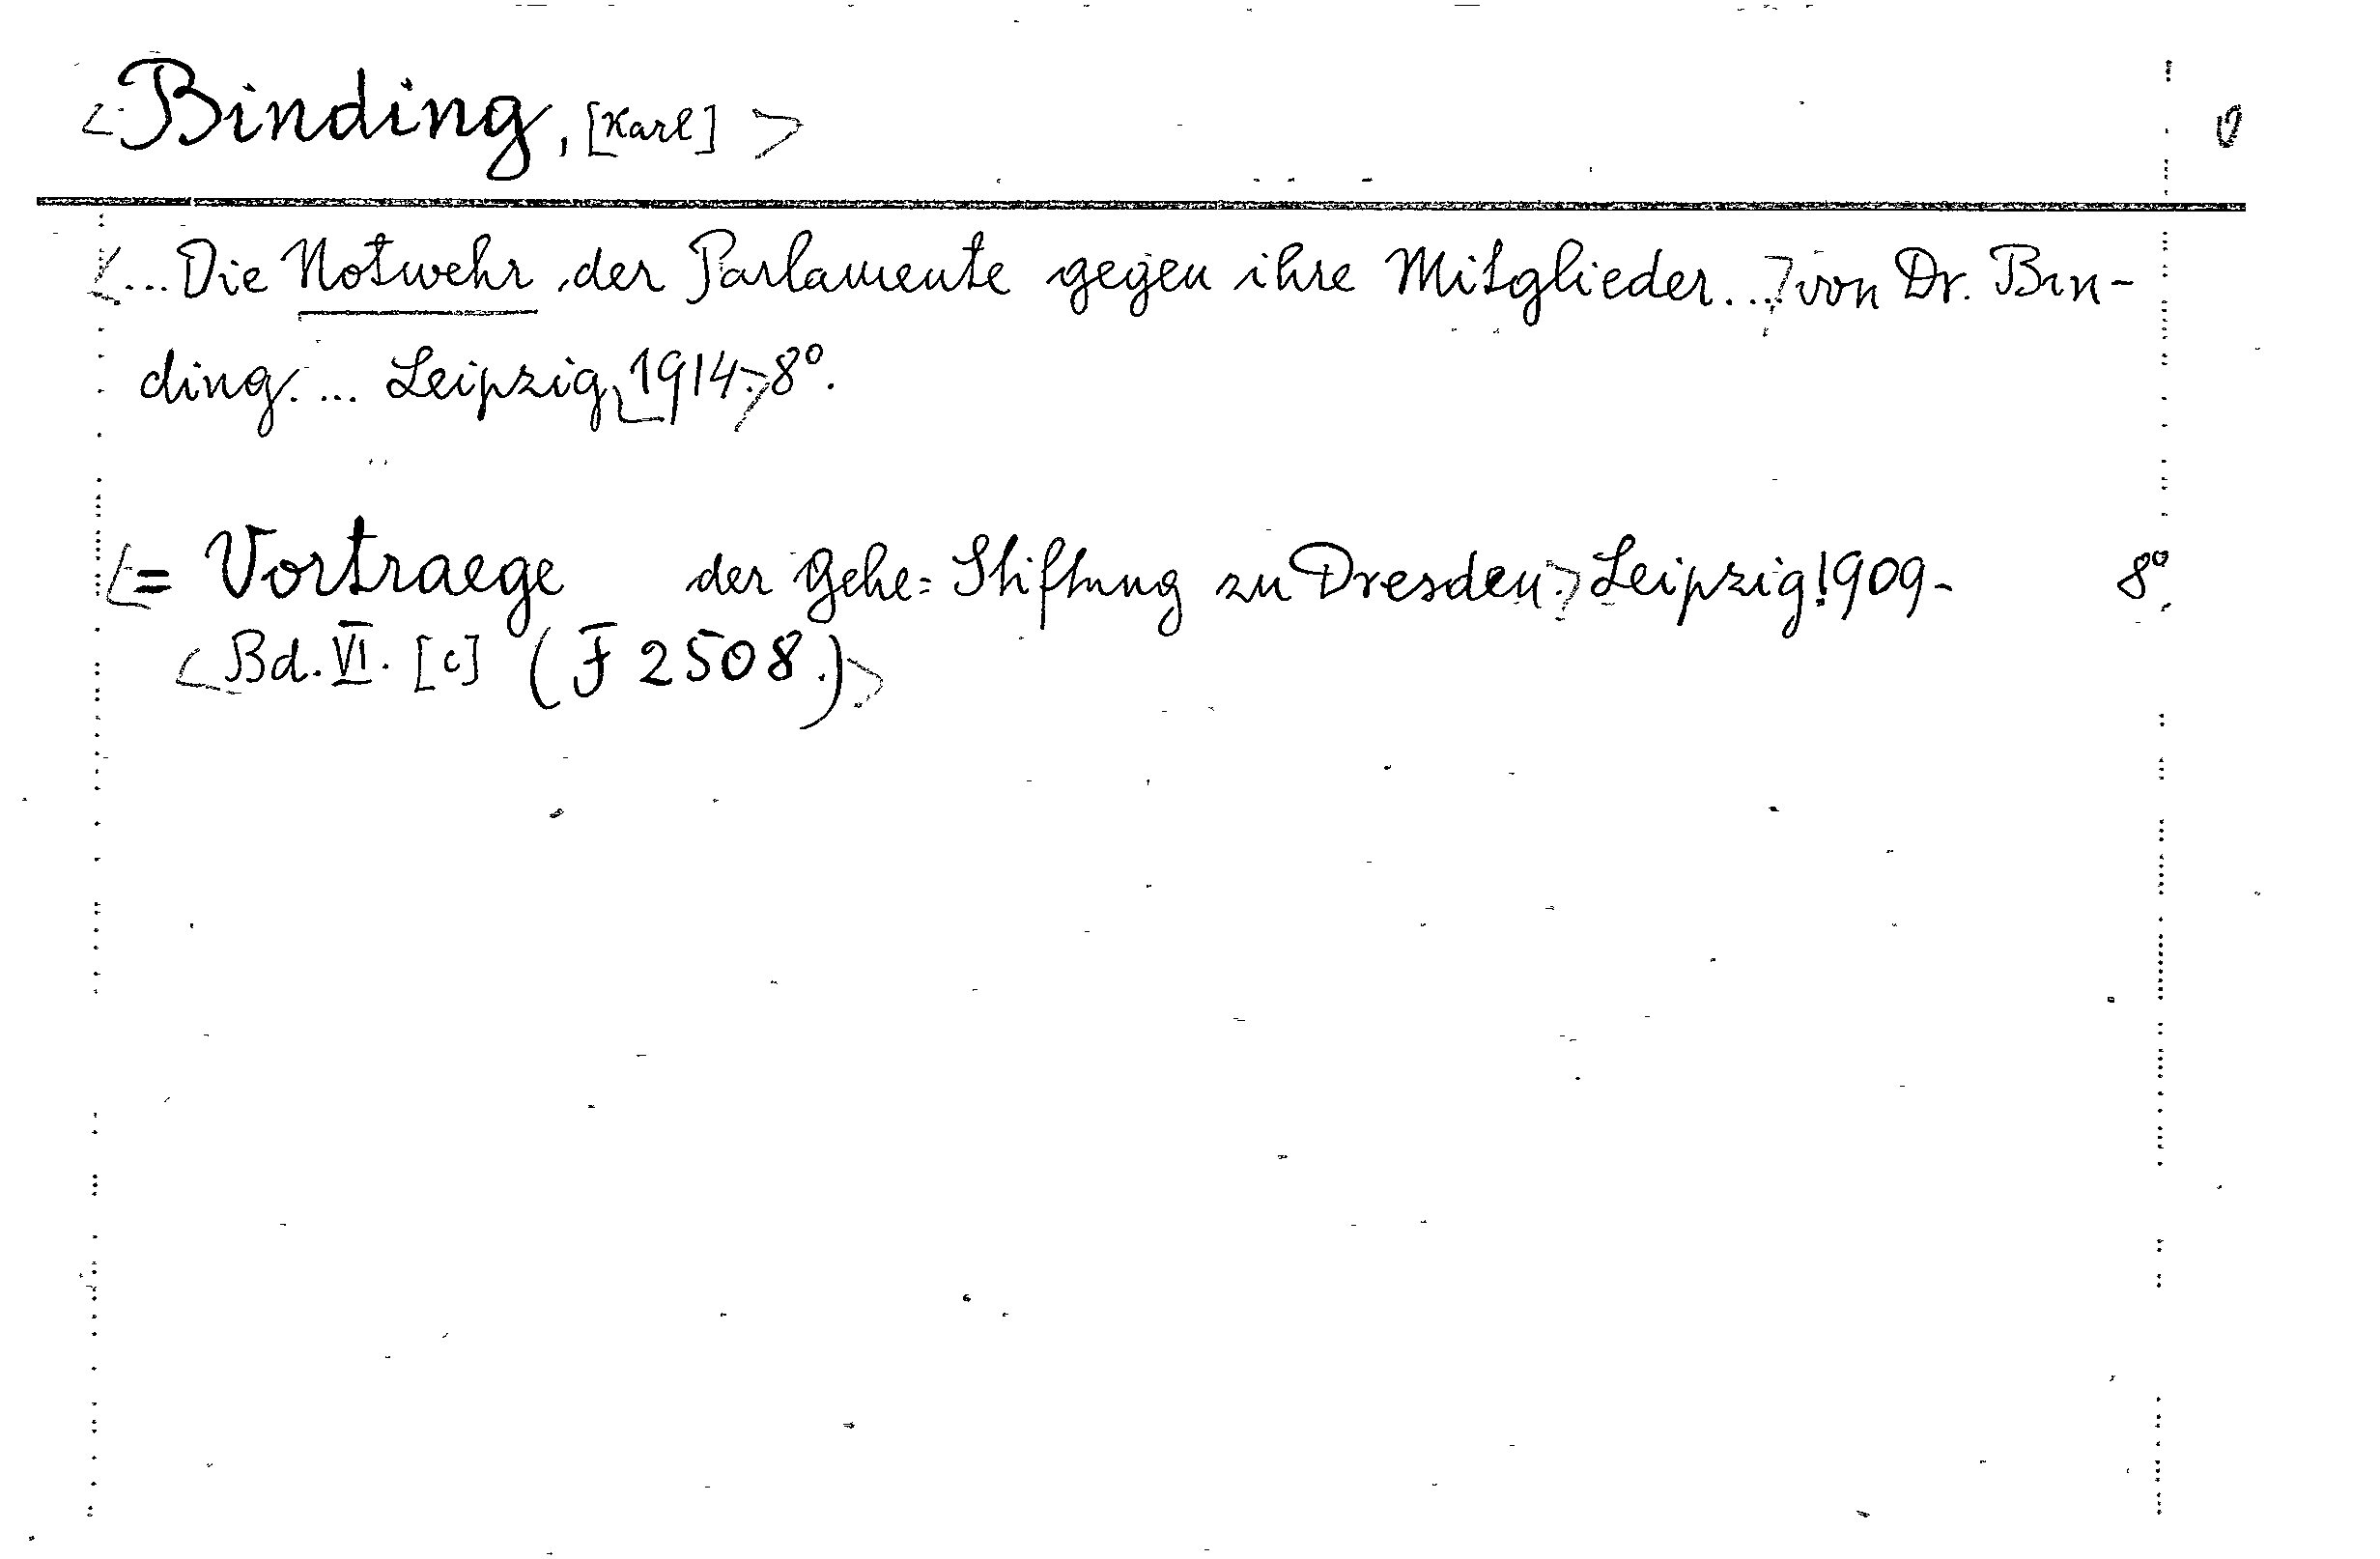 <Binding, [Karl]>
<... Die Notwehr der Parlamente gegen ihre Mitglieder...> von Dr. Bin-
ding. ... Leipzig, <1914.> 8°.
<= Vortraege der Gehe=Stiftung zu Dresden.> Leipzig 1909- 8°.
<Bd. VI. [c] (F 2508.)>